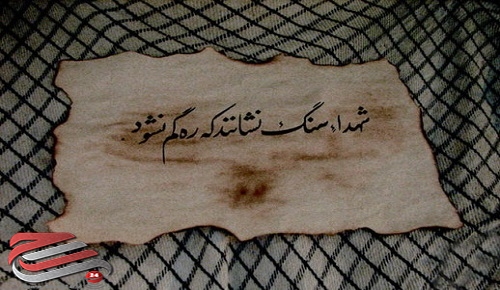 شهداء سنگ نشانند که ره گم نشود
24